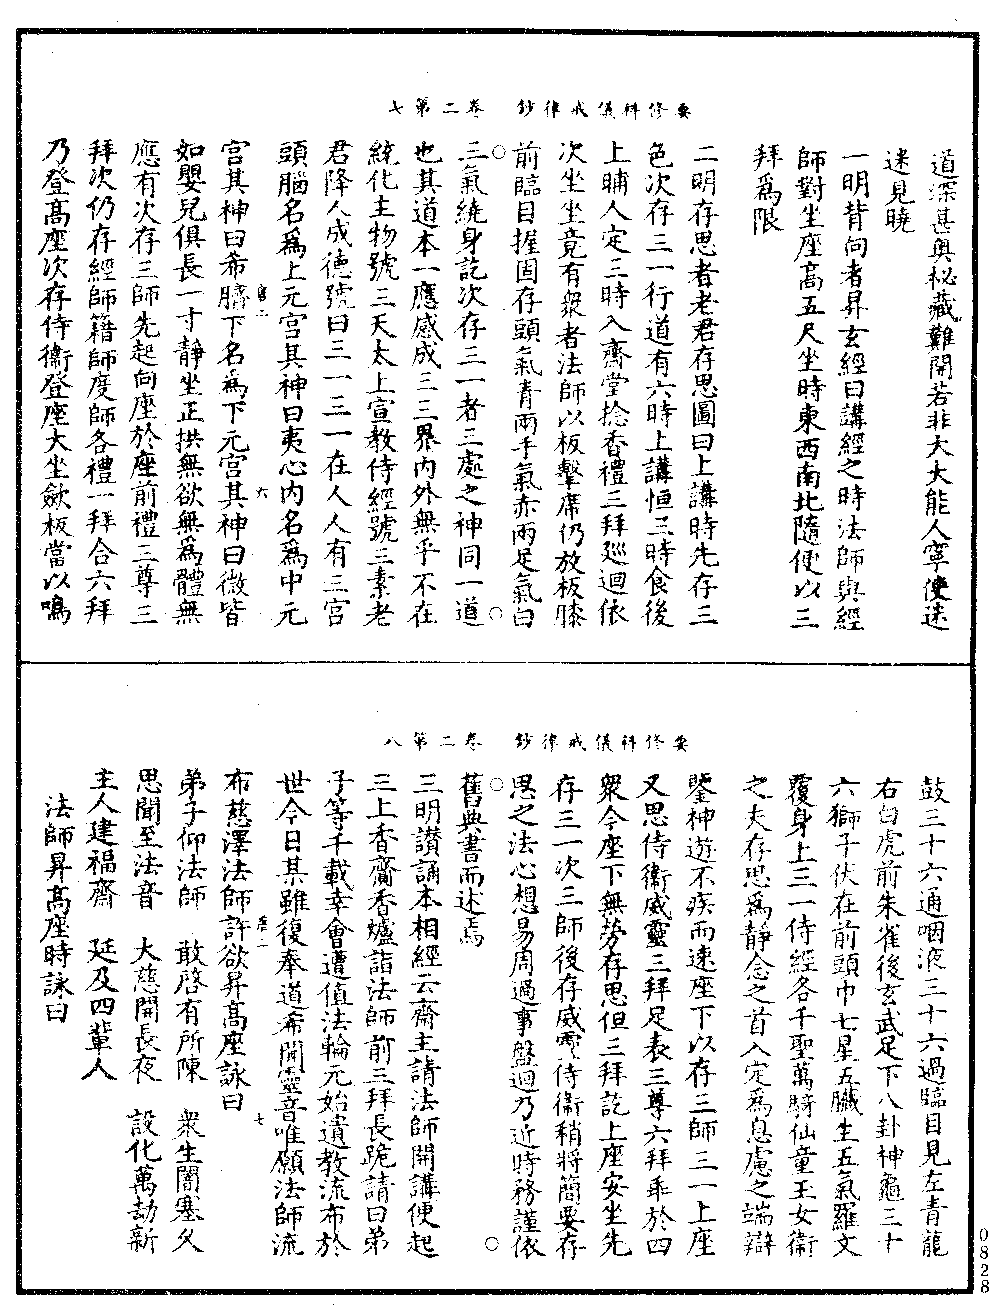 要修科儀戒律鈔　卷二第七
道深甚奧秘藏難開若非大才能人寧使迷
迷見曉
一明背向者昇玄經曰講經之時法師與經
師對坐座高五尺坐時東西南北隨便以三
拜為限
二明存思者老君存思圖曰上講時先存三
色次存三一行道有六時上講恒三時食後
上晡人定三時入齋堂捻香禮三拜巡迴依
次坐坐竟有眾者法師以板擊席仍放板膝
前臨目握固存頭氣青兩手氣赤兩足氣白
三氣繞身訖次存三一者三處之神同一道
也其道本一應感成三三界內外無乎不在
統化主物號三天太上宣教侍經號三素老
君降人成德號曰三一三一在人人有三宮
頭腦名為上元宮其神曰夷心內名為中元
宮其神曰希臍下名為下元宮其神曰微皆
如嬰兒俱長一寸靜坐正拱無欲無為體無
應有次存三師先起向座於座前禮三尊三
拜次仍存經師籍師度師各禮一拜合六拜
乃登高座次存侍衛登座大坐斂板當以鳴
要修科儀戒律鈔　卷二第八
鼓三十六通咽液三十六過臨目見左青龍
右白虎前朱雀後玄武足下八卦神龜三十
六獅子伏在前頭巾七星五臟生五氣羅文
覆身上三一侍經各千聖萬騎仙童玉女衛
之夫存思為靜念之首入定為息慮之端辯
鑒神遊不疾而速座下以存三師三一上座
又思侍衛威靈三拜足表三尊六拜乖於四
眾今座下無勞存思但三拜訖上座安坐先
存三一次三師後存威靈侍衛稍將簡要存
思之法心想易周過事盤迴乃近時務謹依
舊典書而述焉
三明讚誦本相經云齋主請法師開講便起
三上香齎香爐詣法師前三拜長跪請曰弟
子等千載幸會遭值法輪元始遺教流布於
世今日某雖復奉道希聞靈音唯願法師流
布慈澤法師許欲昇高座詠曰
弟子仰法師　敢啓有所陳　眾生闇塞久
思聞至法音　大慈開長夜　設化萬劫新
主人建福齋　延及四輩人
法師昇高座時詠曰
0828